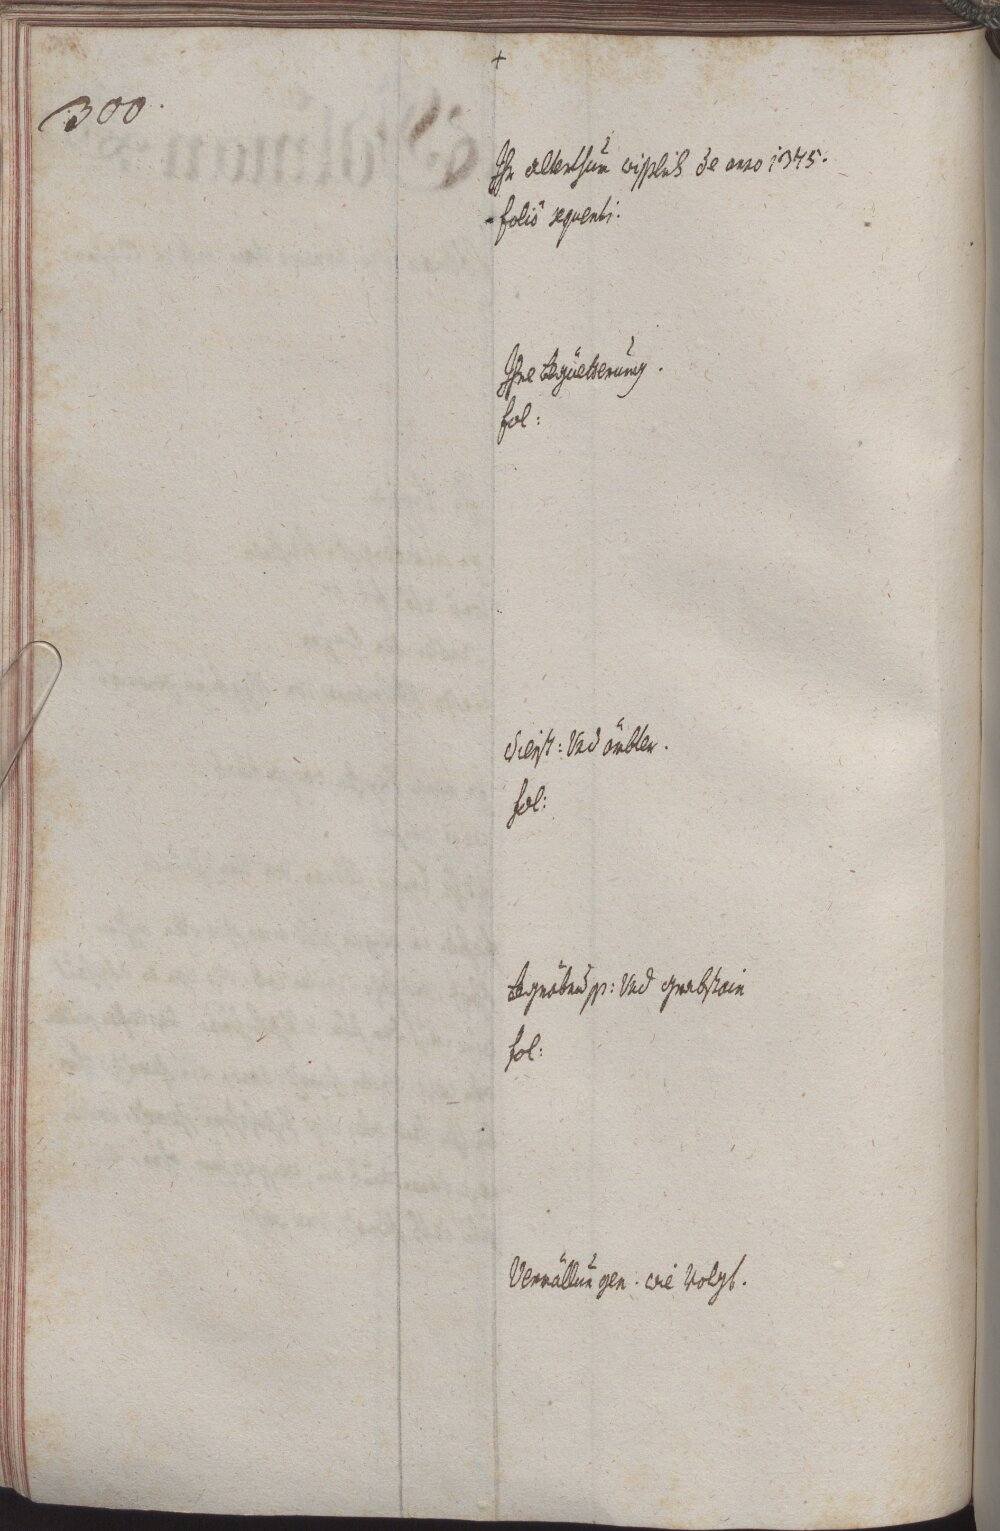 +
300.
Ihr alterthum wisslich de anno 1375.
folio sequenti.
Ihre Begüetterung.
fol:
Dienst: Und ämbter.
fol:
Begräbnus: Und grabstain
fol:
Vermällungen. wie Volgt.